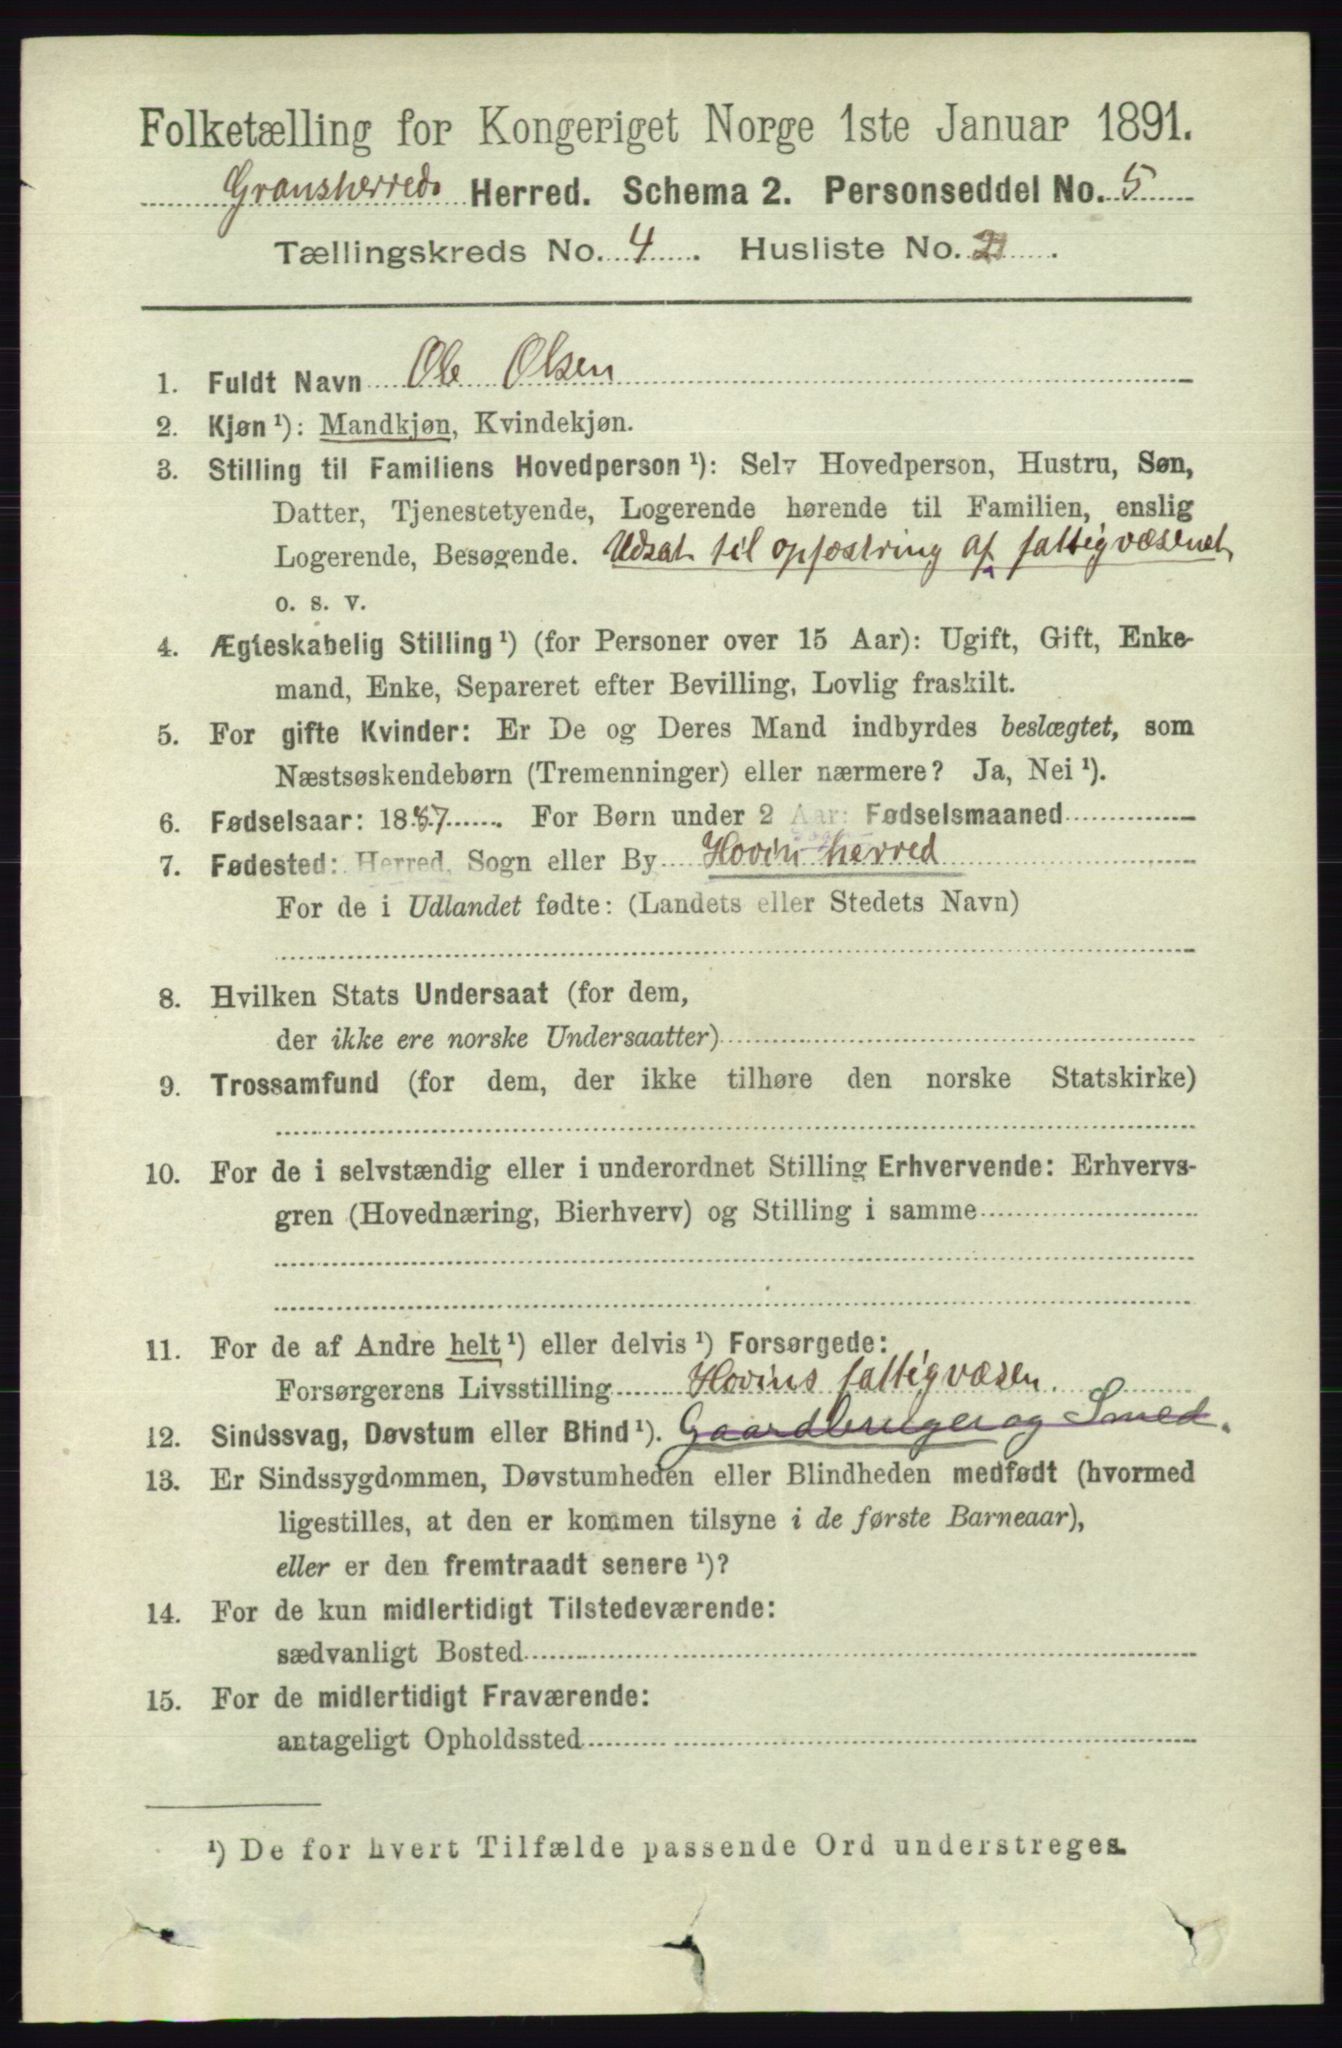 Folketælling for Kongeriget Norge 1ste Januar 1891.
Gransherreds Herred. Schema 2. Personseddel No. 5
Tællingskreds No. 4. Husliste No. 21.
1. Fuldt Navn Ole Olsen
2. Kjøn ¹): Mandkjøn, Kvindekjøn.
3. Stilling til Familiens Hovedperson ¹): Selv Hovedperson, Hustru, Søn,
Datter, Tjenestetyende, Logerende hørende til Familien, enslig
Logerende, Besøgende. Udsat til opfostring af fattigvæsenet
o. s. v.
4. Ægteskabelig Stilling ¹) (for Personer over 15 Aar): Ugift, Gift, Enke-
mand, Enke, Separeret efter Bevilling, Lovlig fraskilt.
5. For gifte Kvinder: Er De og Deres Mand indbyrdes beslægtet, som
Næstsøskendebørn (Tremenninger) eller nærmere? Ja, Nei ¹).
6. Fødselsaar: 1887. For Børn under 2 Aar: Fødselsmaaned
7. Fødested: Herred, Sogn eller By Hovin herred
For de i Udlandet fødte: (Landets eller Stedets Navn)
8. Hvilken Stats Undersaat (for dem,
der ikke ere norske Undersaatter)
9. Trossamfund (for dem, der ikke tilhøre den norske Statskirke)
10. For de i selvstændig eller i underordnet Stilling Erhvervende: Erhvervs-
gren (Hovednæring, Bierhverv) og Stilling i samme
11. For de af Andre helt ¹) eller delvis ¹) Forsørgede:
Forsørgerens Livsstilling Hovins fattigvæsen.
12. Sindssvag, Døvstum eller Blind ¹). Gaardbruger og Smed.
13. Er Sindssygdommen, Døvstumheden eller Blindheden medfødt (hvormed
ligestilles, at den er kommen tilsyne i de første Barneaar),
eller er den fremtraadt senere ¹)?
14. For de kun midlertidigt Tilstedeværende:
sædvanligt Bosted
15. For de midlertidigt Fraværende:
antageligt Opholdssted
¹) De for hvert Tilfælde passende Ord understreges.